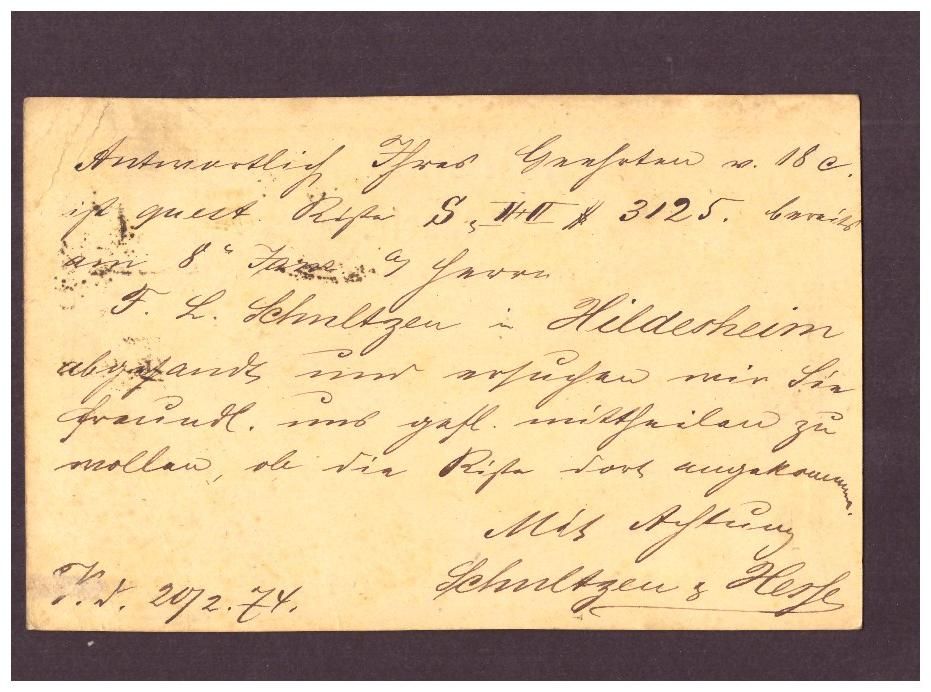 Antwortlich Ihres Geehrten v. 18 c.
ist quest. Kiste S & H # 3125. bereits
am 8" Janr a/ Herrn
F. L. Schultzen in Hildesheim
abgesandt und ersuchen wir Sie
freundl. uns gefl. mittheilen zu
wollen, ob die Kiste dort angekommen.
Mit Achtung
Schultzen & Hesse
20/2.74.